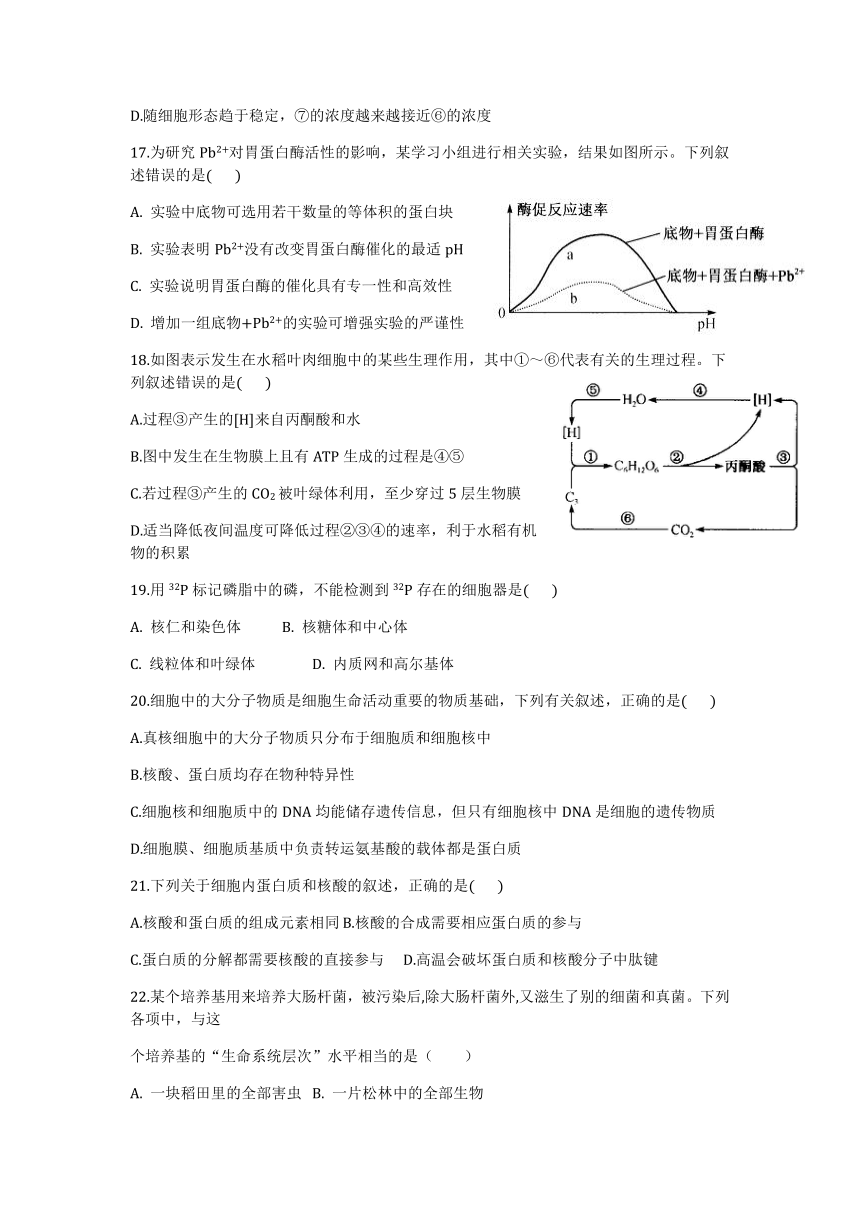 D.随细胞形态趋于稳定，⑦的浓度越来越接近⑥的浓度
17.为研究 Pb²⁺对胃蛋白酶活性的影响，某学习小组进行相关实验，结果如图所示。下列叙
述错误的是(   )
A. 实验中底物可选用若干数量的等体积的蛋白块
B. 实验表明 Pb²⁺没有改变胃蛋白酶催化的最适 pH
C. 实验说明胃蛋白酶的催化具有专一性和高效性
D. 增加一组底物+Pb²⁺的实验可增强实验的严谨性
酶促反应速率
底物+胃蛋白酶
a
底物+胃蛋白酶+Pb²⁺
b
0
pH
18.如图表示发生在水稻叶肉细胞中的某些生理作用，其中①～⑥代表有关的生理过程。下
列叙述错误的是(   )
A.过程③产生的[H]来自丙酮酸和水
B.图中发生在生物膜上且有 ATP 生成的过程是④⑤
C.若过程③产生的 CO₂ 被叶绿体利用，至少穿过 5 层生物膜
D.适当降低夜间温度可降低过程②③④的速率，利于水稻有机
物的积累
⑤ H₂O ④ [H]
[H]
① C₆H₁₂O₆ ② 丙酮酸 ③
C₃
⑥ CO₂
19.用 ³²P 标记磷脂中的磷，不能检测到 ³²P 存在的细胞器是(   )
A. 核仁和染色体   B. 核糖体和中心体
C. 线粒体和叶绿体   D. 内质网和高尔基体
20.细胞中的大分子物质是细胞生命活动重要的物质基础，下列有关叙述，正确的是(   )
A.真核细胞中的大分子物质只分布于细胞质和细胞核中
B.核酸、蛋白质均存在物种特异性
C.细胞核和细胞质中的 DNA 均能储存遗传信息，但只有细胞核中 DNA 是细胞的遗传物质
D.细胞膜、细胞质基质中负责转运氨基酸的载体都是蛋白质
21.下列关于细胞内蛋白质和核酸的叙述，正确的是(   )
A.核酸和蛋白质的组成元素相同 B.核酸的合成需要相应蛋白质的参与
C.蛋白质的分解都需要核酸的直接参与   D.高温会破坏蛋白质和核酸分子中肽键
22.某个培养基用来培养大肠杆菌，被污染后,除大肠杆菌外,又滋生了别的细菌和真菌。下列
各项中，与这
个培养基的“生命系统层次”水平相当的是（   ）
A. 一块稻田里的全部害虫   B. 一片松林中的全部生物